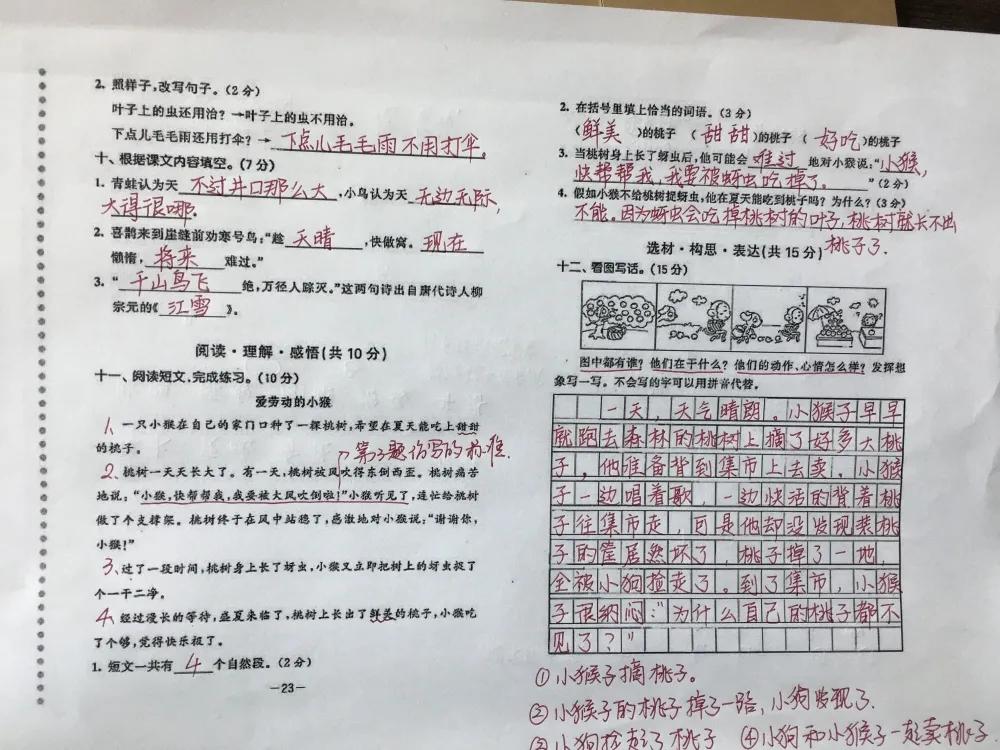 2. 照样子,改写句子。(2分)
叶子上的虫还用治?→叶子上的虫不用治。
下点儿毛毛雨还用打伞?→下点儿毛毛雨不用打伞。
十、根据课文内容填空。(7分)
1. 青蛙认为天不过井口那么大,小鸟认为天无边无际,
大得很哪.
2. 喜鹊来到崖缝前劝寒号鸟:“趁天晴,快做窝。现在
懒惰,将来难过。”
3. “千山鸟飞绝,万径人踪灭。”这两句诗出自唐代诗人柳
宗元的《江雪》。
阅读·理解·感悟(共10分)
十一、阅读短文,完成练习。(10分)
爱劳动的小猴
1、一只小猴在自己的家门口种了一棵桃树,希望在夏天能吃上甜甜
的桃子。
第3题仿写的标准.
2、桃树一天天长大了。有一天,桃树被风吹得东倒西歪。桃树痛苦
地说:“小猴,快帮帮我,我要被大风吹倒啦!”小猴听见了,连忙给桃树
做了个支撑架。桃树终于在风中站稳了,感激地对小猴说:“谢谢你,
小猴!”
3、过了一段时间,桃树身上长了蚜虫,小猴又立即把树上的蚜虫捉了
个一干二净。
4、经过漫长的等待,盛夏来临了,桃树上长出了鲜美的桃子,小猴吃
了个够,觉得快乐极了。
1. 短文一共有4个自然段。(2分)
—23—
2. 在括号里填上恰当的词语。(3分)
(鲜美)的桃子 (甜甜)的桃子 (好吃)的桃子
3. 当桃树身上长了蚜虫后,他可能会难过地对小猴说:“小猴,
快帮帮我,我要被蚜虫吃掉了。”(2分)
4. 假如小猴不给桃树捉蚜虫,他在夏天能吃到桃子吗?为什么?(3分)
不能。因为蚜虫会吃掉桃树的叶子,桃树就长不出
桃子了.
选材·构思·表达(共15分)
十二、看图写话。(15分)
图中都有谁?他们在干什么?他们的动作、心情怎么样?发挥想
象写一写。不会写的字可以用拼音代替。
一天,天气晴朗。小猴子早早
就跑去森林的桃树上摘了好多大桃
子,他准备背到集市上去卖。小猴
子一边唱着歌,一边快活的背着桃
子往集市走,可是他却没发现装桃
子的筐居然坏了,桃子掉了一地,
全被小狗捡走了。到了集市,小猴
子很纳闷:“为什么自己的桃子都不
见了?”
①小猴子摘桃子。
②小猴子的桃子掉了一路,小狗发现了.
③小狗捡起了桃子 ④小狗和小猴子一起卖桃子.